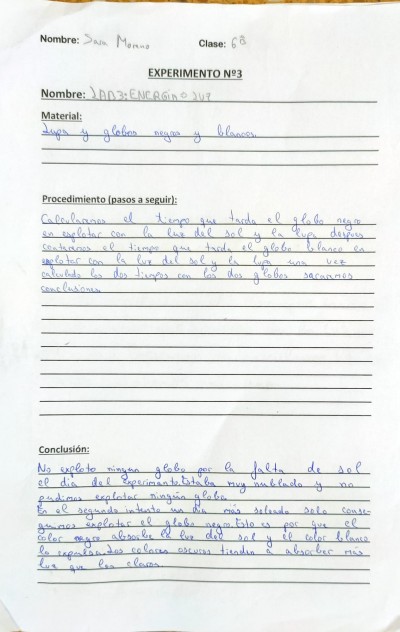 Nombre: Sara Moreno Clase: 6ºB
EXPERIMENTO Nº3
Nombre: LAB3: ENERGÍA LUZ
Material:
Lupa y globos negros y blancos.
Procedimiento (pasos a seguir):
Calcularemos el tiempo que tarda el globo negro
en explotar con la luz del sol y la lupa despues
contaremos el tiempo que tarda el globo blanco en
explotar con la luz del sol y la lupa una vez
calculado los dos tiempos con los dos globos sacaremos
conclusiones
Conclusión:
No exploto ningun globo por la falta de sol
el dia del experimanto. Estaba muy nublado y no
pudimos explotar ningún globo.
En el segundo intento un dia más soleado solo conse-
guimos explotar el globo negro. Esto es por que el
color negro absorbe la luz del sol y el color blanco
la expulsa. Los colores oscuros tienden a absorber más
luz que los claros.